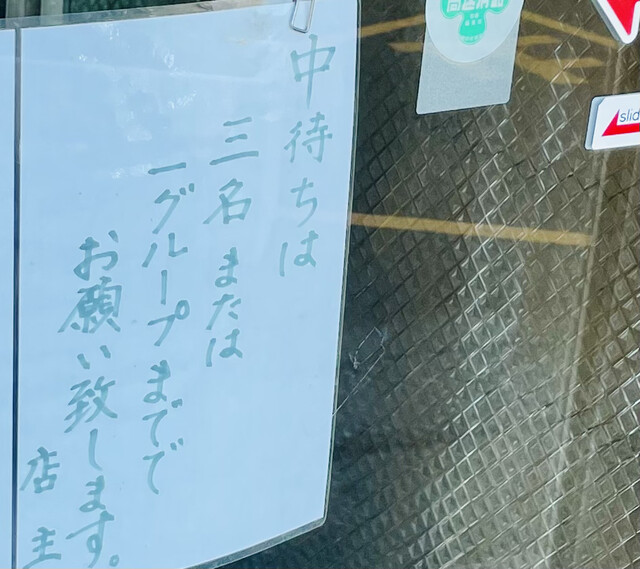 中待ちは
三名または
一グループまでで
お願い致します。
店主
slid